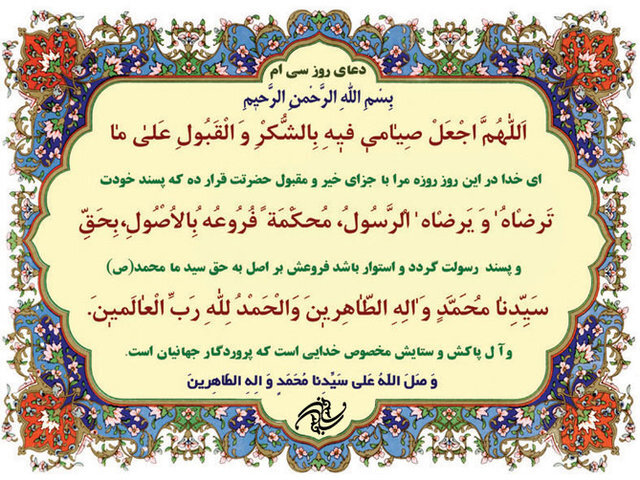 دعای روز سی ام
بِسْمِ اللهِ الرَّحْمنِ الرَّحیمِ
اَللّٰهُمَّ اجْعَلْ صِیٰامي فیٖهِ بِالشُّکْرِ وَ الْقَبُولِ عَلیٰ مٰا
ای خدا در این روز روزه مرا با جزای خیر و مقبول حضرتت قرار ده که پسند خودت
تَرضٰاهُ وَ یَرضٰاه الرَّسُولُ، مُحکَمَةً فُرُوعُهُ بِالاُصُولِ،بِحَقِّ
و پسند رسولت گردد و استوار باشد فروعش بر اصل به حق سید ما محمد(ص)
سَیِّدِنٰا مُحَمَّدٍ وَ اٰلِهِ الطّٰاهِریٖنَ وَالْحَمْدُ لِلّٰهِ رَبِّ الْعٰالَمیٖنَ.
و آل پاکش و ستایش مخصوص خدایی است که پروردگار جهانیان است.
وَ صَلَ اللهُ عَلی سَیِّدِنا مُحَمَدٍ وَ الِهِ الطاهِرینَ